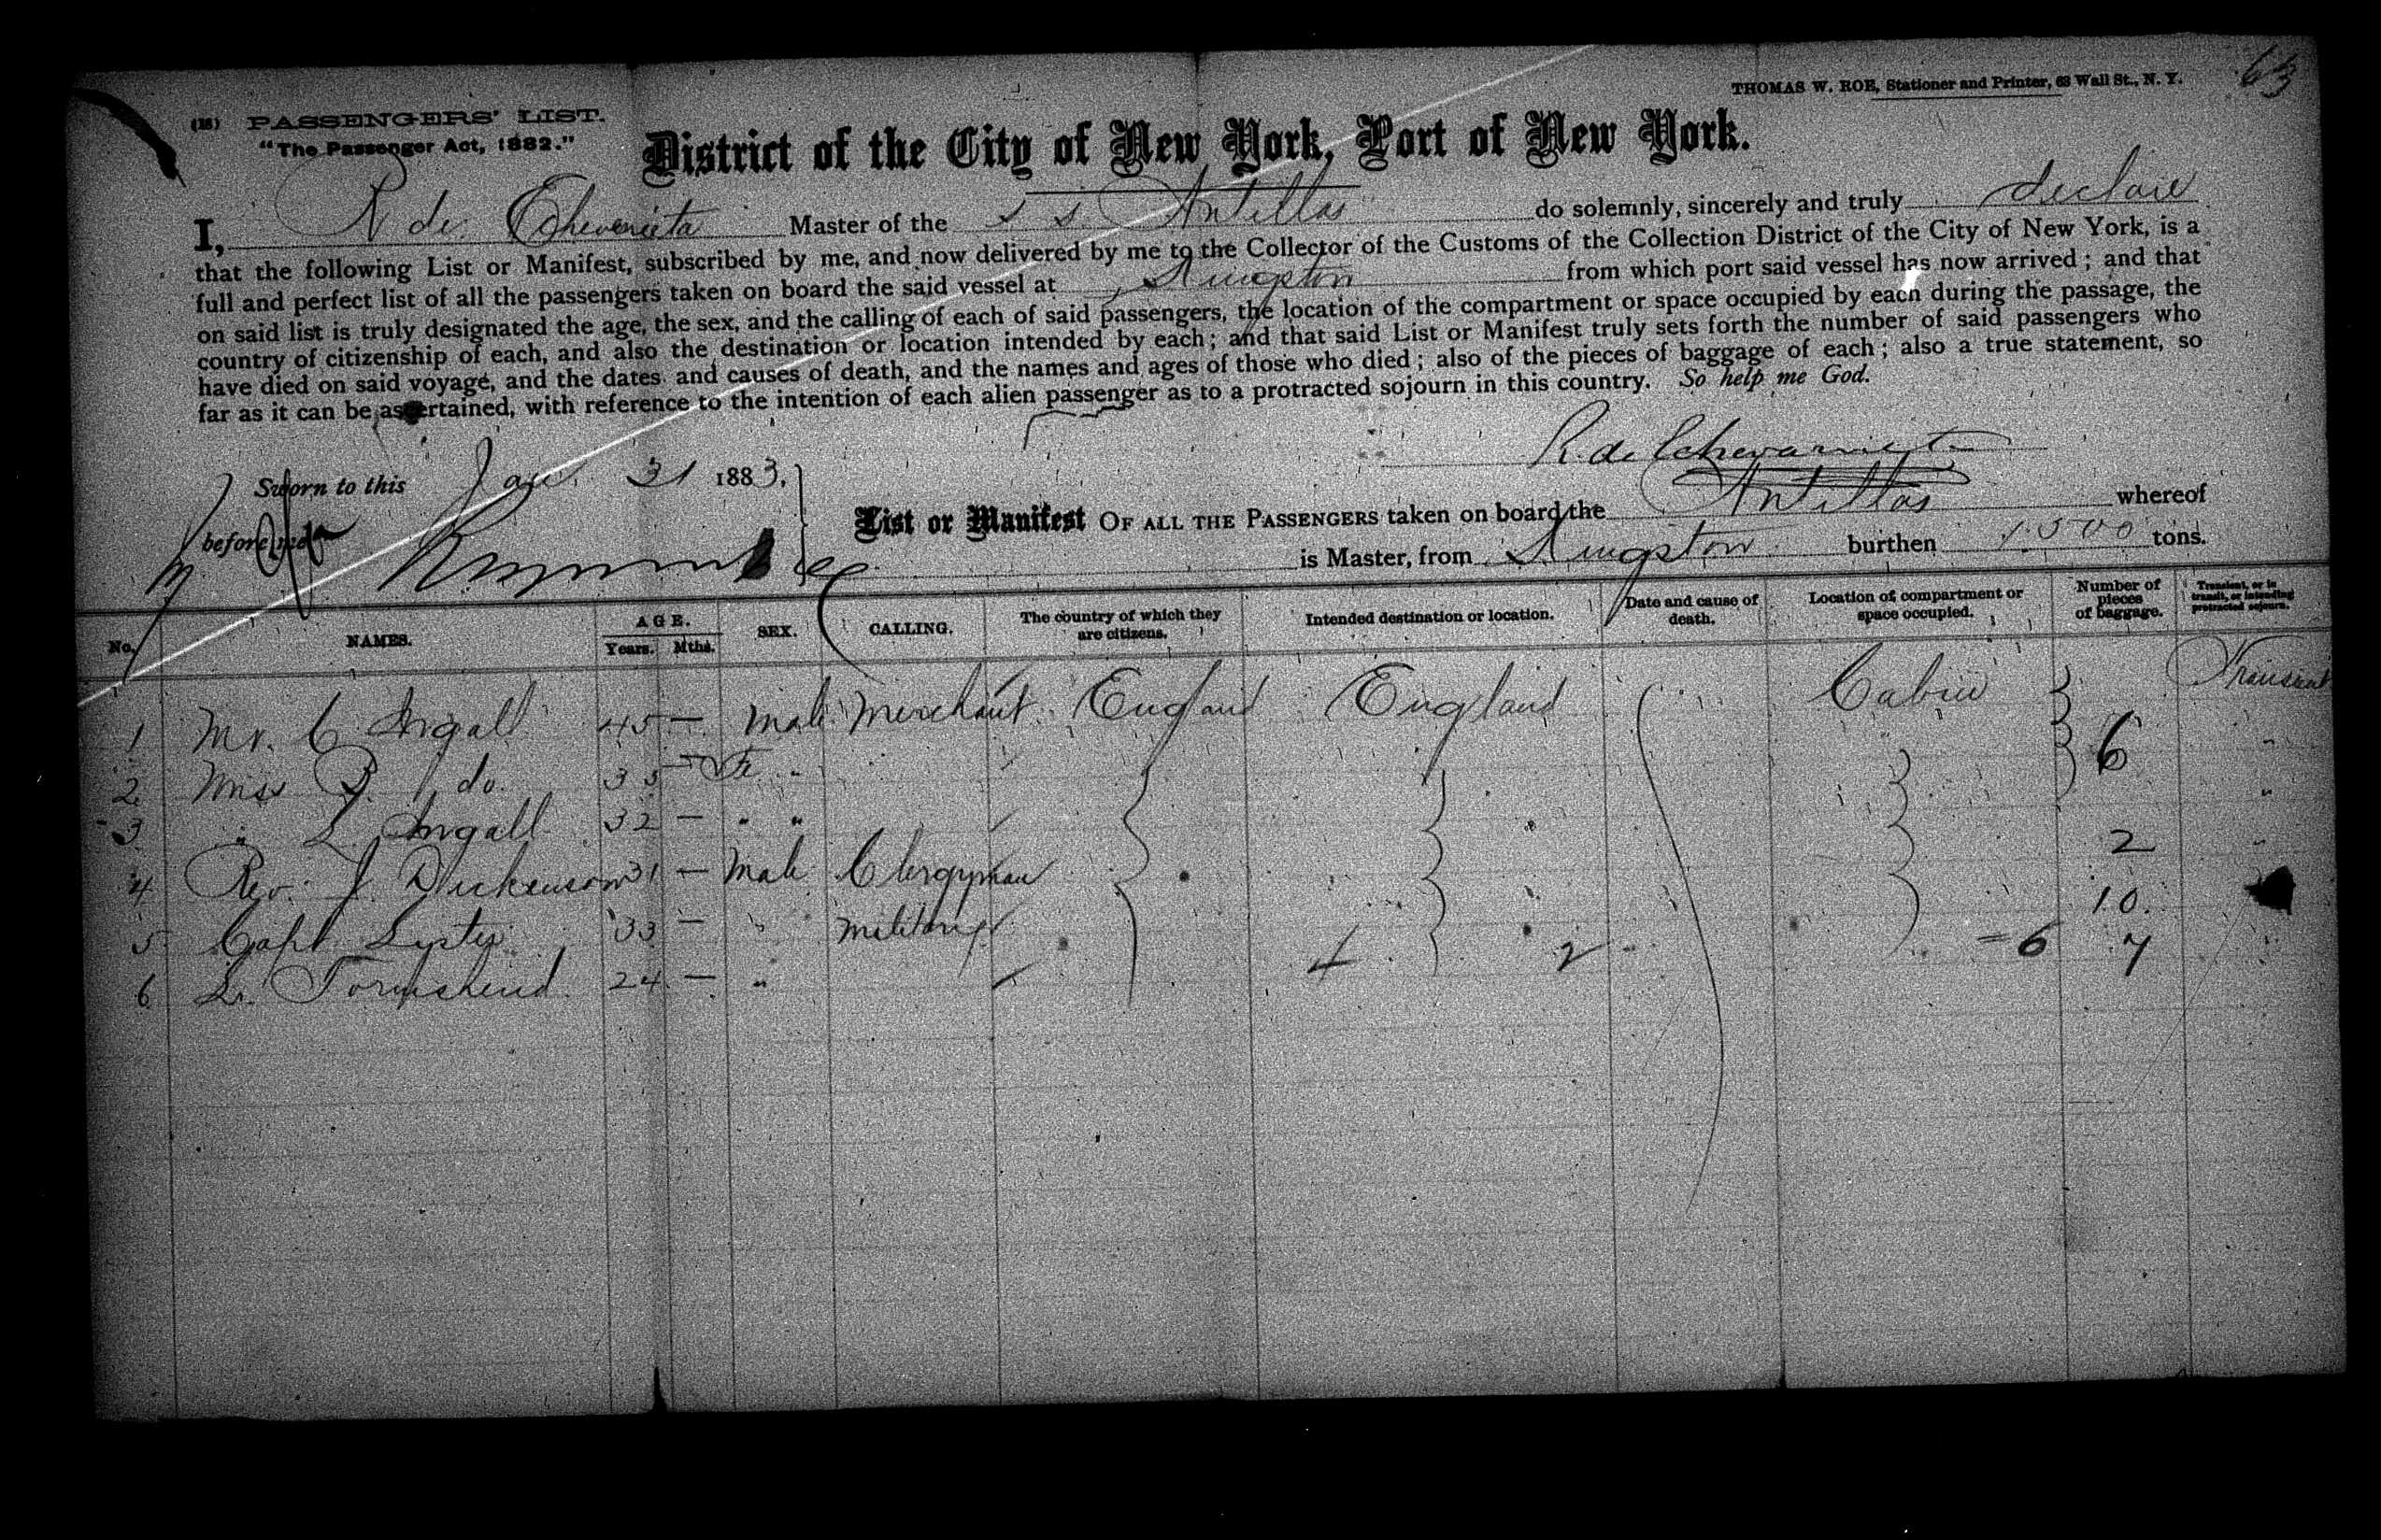 63
THOMAS W. ROE, Stationer and Printer, 63 Wall St., N. Y.
(18) PASSENGERS' LIST.
"The Passenger Act, 1882."
District of the City of New York, Port of New York.
I, R de Echevarrieta Master of the S. S. Antillas do solemnly, sincerely and truly declare
that the following List or Manifest, subscribed by me, and now delivered by me to the Collector of the Customs of the Collection District of the City of New York, is a
full and perfect list of all the passengers taken on board the said vessel at Kingston from which port said vessel has now arrived; and that
on said list is truly designated the age, the sex, and the calling of each of said passengers, the location of the compartment or space occupied by each during the passage, the
country of citizenship of each, and also the destination or location intended by each; and that said List or Manifest truly sets forth the number of said passengers who
have died on said voyage, and the dates and causes of death, and the names and ages of those who died; also of the pieces of baggage of each; also a true statement, so
far as it can be ascertained, with reference to the intention of each alien passenger as to a protracted sojourn in this country. So help me God.
R. de Echevarrieta
Sworn to this Jany 31 1883,
before me
List or Manifest OF ALL THE PASSENGERS taken on board the Antillas whereof
is Master, from Kingston burthen 1.500 tons.
No. NAMES. AGE. Years. Mths. SEX. CALLING. The country of which they are citizens. Intended destination or location. Date and cause of death. Location of compartment or space occupied. Number of pieces of baggage. Transient, or in transit, or intending protracted sojourn.
1 Mr. C Ingall 45 — Male Merchant England England Cabin Transient
2 Miss P. do. 35 — Fe " 6 "
3 " L. Ingall 32 — " " "
4 Rev. J. Dickenson 31 — Male Clergyman 2 "
5 Capt. Lyster 33 — " Military 10.
6 Lt. Townshend 24 — " 2 = 6 7